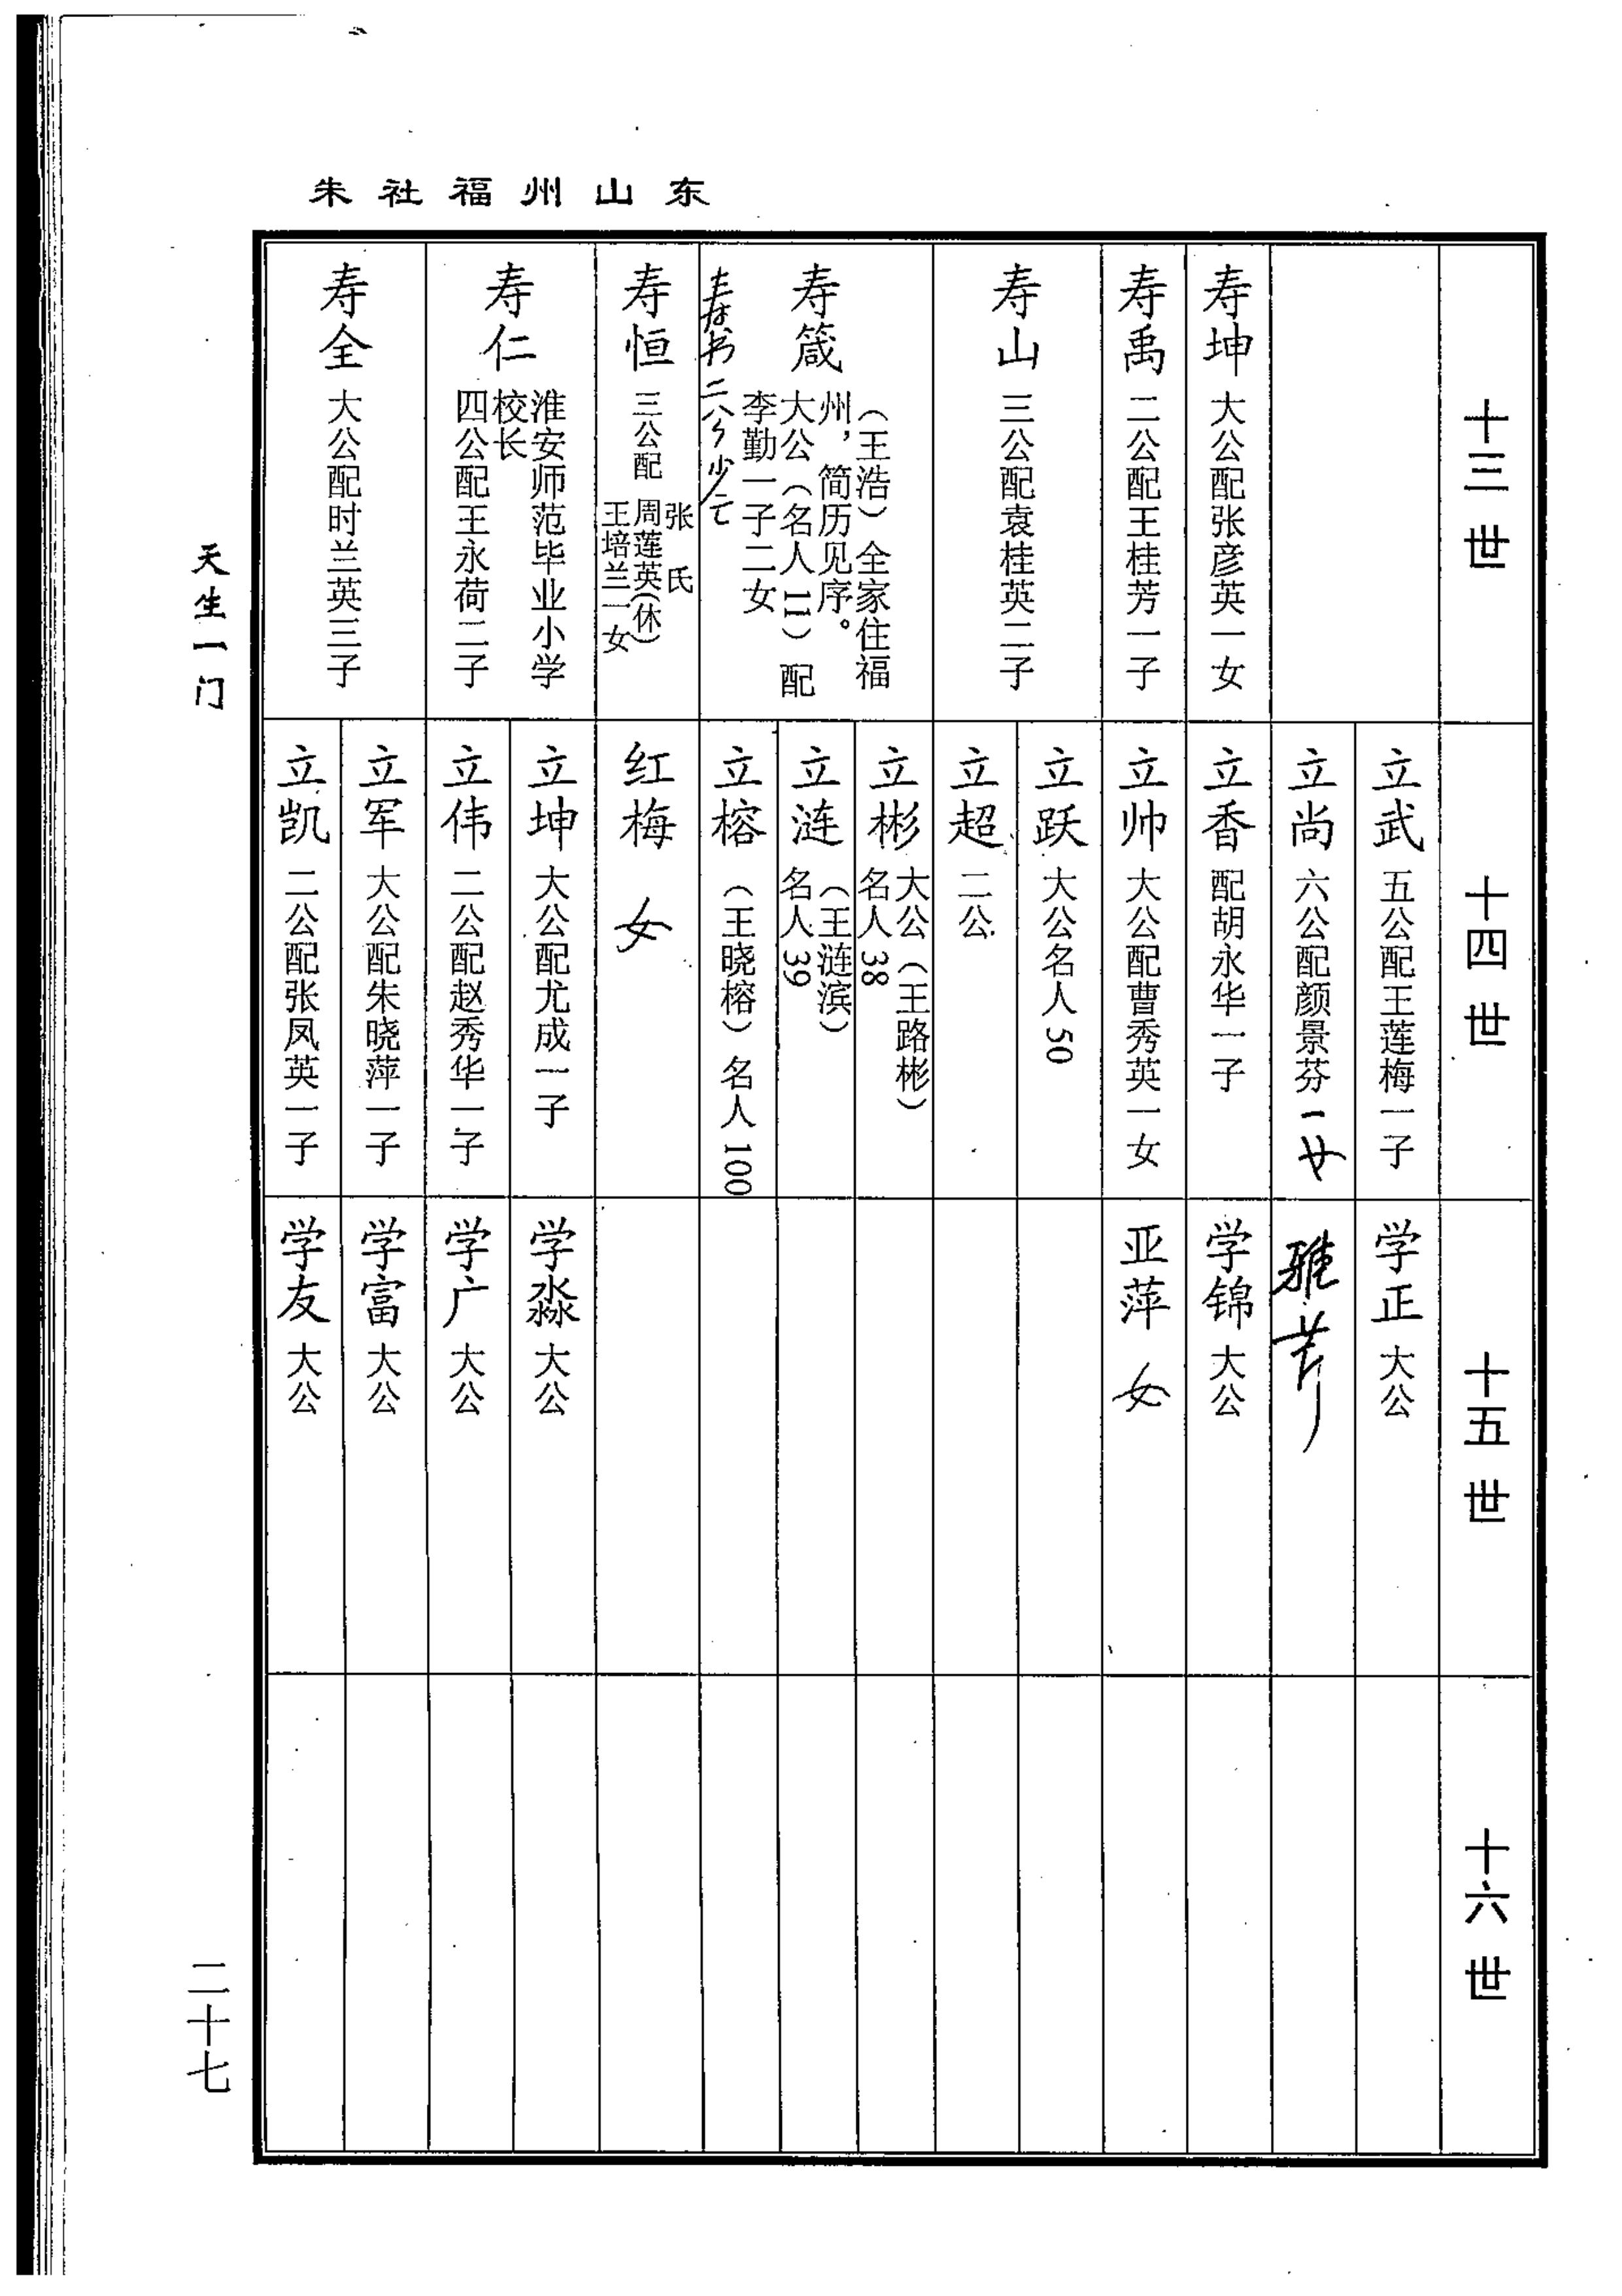 东山州福社朱
十三世
寿坤 大公配张彦英一女
寿禹 二公配王桂芳一子
寿山 三公配袁桂英二子
寿箴 (王浩)全家住福
州，简历见序。
大公(名人 11)配
李勤一子二女
寿书 二公少亡
寿恒 三公配
张氏
周莲英(休)
王培兰一女
寿仁 淮安师范毕业小学
校长
四公配王永荷二子
寿全 大公配时兰英三子
十四世
立武 五公配王莲梅一子
立尚 六公配颜景芬一女
立香 配胡永华一子
立帅 大公配曹秀英一女
立跃 大公名人 50
立超 二公
立彬 大公(王路彬)
名人 38
立涟 (王涟滨)
名人 39
立榕 (王晓榕)名人 100
红梅 女
立坤 大公配尤成一子
立伟 二公配赵秀华一子
立军 大公配朱晓萍一子
立凯 二公配张凤英一子
十五世
学正 大公
雅芹
学锦 大公
亚萍 女
学淼 大公
学广 大公
学富 大公
学友 大公
十六世
天生一门
二十七